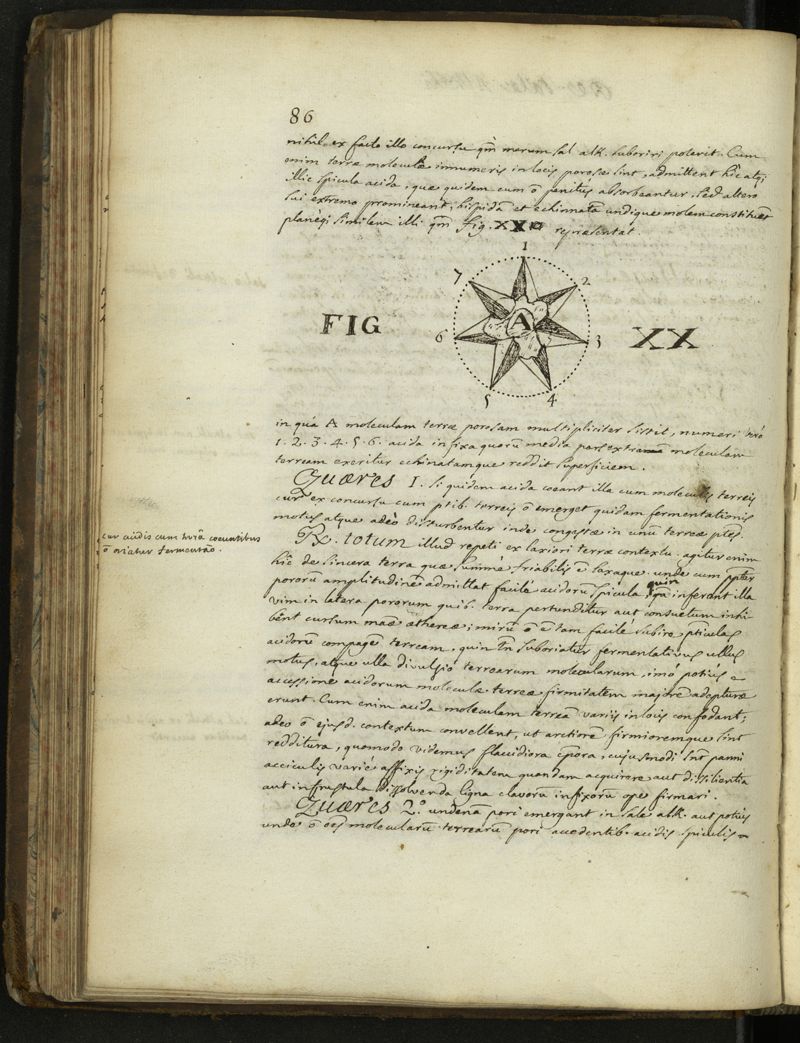 86
nihil ex facto illo concursu qm̃ merum sal alk. suboriri poterit. Cum
enim terræ moleculæ innumeris in locis porosæ sint, admittent hîc atq;
illic spicula acida, quæ quidem cum ō penitus absorbeantur, sed altero
sui extremo promineant, hispidā et echinnatā undique molem constituēt
planeq; similem illi qm̃ fig. XX representat.
FIG
XX
1
2
3
4
5
6
7
A
in qua A moleculam terræ porosam multipliciter sistit, numeri vero
1. 2. 3. 4. 5. 6. acida infixa quorū media pars extra moleculam
terream exeritur echinatamque reddit superficiem.
Quæres 1. si quidem acida coeant illa cum moleculis terreis
cur ex concursu cum ptib. terreis ō emerget quidam fermentationis
motus atque adeo disturbentur inde congestæ in unū terreæ ptes.
cur acidis cum terrā coeuntibus
ō oriatur fermentāo.
Rx. totum illud repeti ex laxiori terræ contextu. agitur enim
hîc de sincera terra quæ summè friabilis ē laxaque. unde cum ppter
pororū amplitudinē admittat facilè acidorū spicula, quin inferant illa
vim in latera pororum quib. terra pertunditur aut consuetum inhi-
bēnt cursum maæ æthereæ; mirū ō ē tam facilé subire pticulas
acidorū compagē terream, quin tn̄ suboriatur fermentativus ullus
motus, atque ulla divulsio terrearum molecularum, imò potius e
accessione acidorum moleculæ terreæ firmitatem majorē adepturæ
erunt. Cum enim acida moleculam terreā variis in locis confodant;
adeo ō ejusd. contextum convellent, ut arctiorē firmioremque sint
redditura, quomodo videmus flaccidiora cpora, cujusmodi snt panni
acciculis varié affixis rigiditatem quandam acquirere aut dissilientia
aut in frustula dissolvenda ligna clavorū infixorū ope firmari.
Quæres 2.° undenā pori emergant in sale alk. aut potius
unde ō oēs molecularū terrearū pori accedentib. acidis spiculis